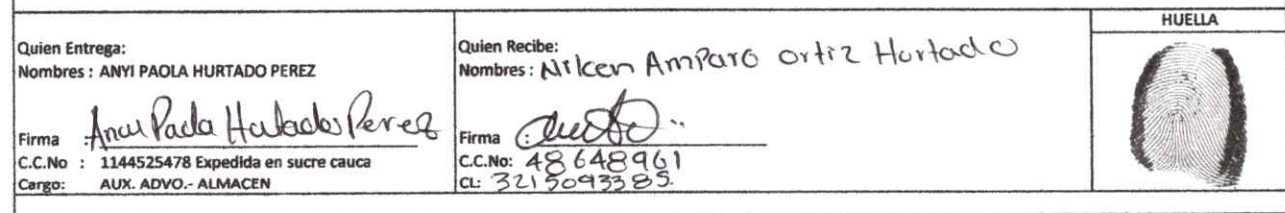 Quien Entrega:
Nombres : ANYI PAOLA HURTADO PEREZ
Firma : Paola Hurtado Perez
C.C.No : 1144525478 Expedida en sucre cauca
Cargo: AUX. ADVO.- ALMACEN
Quien Recibe:
Nombres : Nilcen Amparo ortiz Hurtado
Firma :
C.C.No: 48648961
CL: 3215093385.
HUELLA